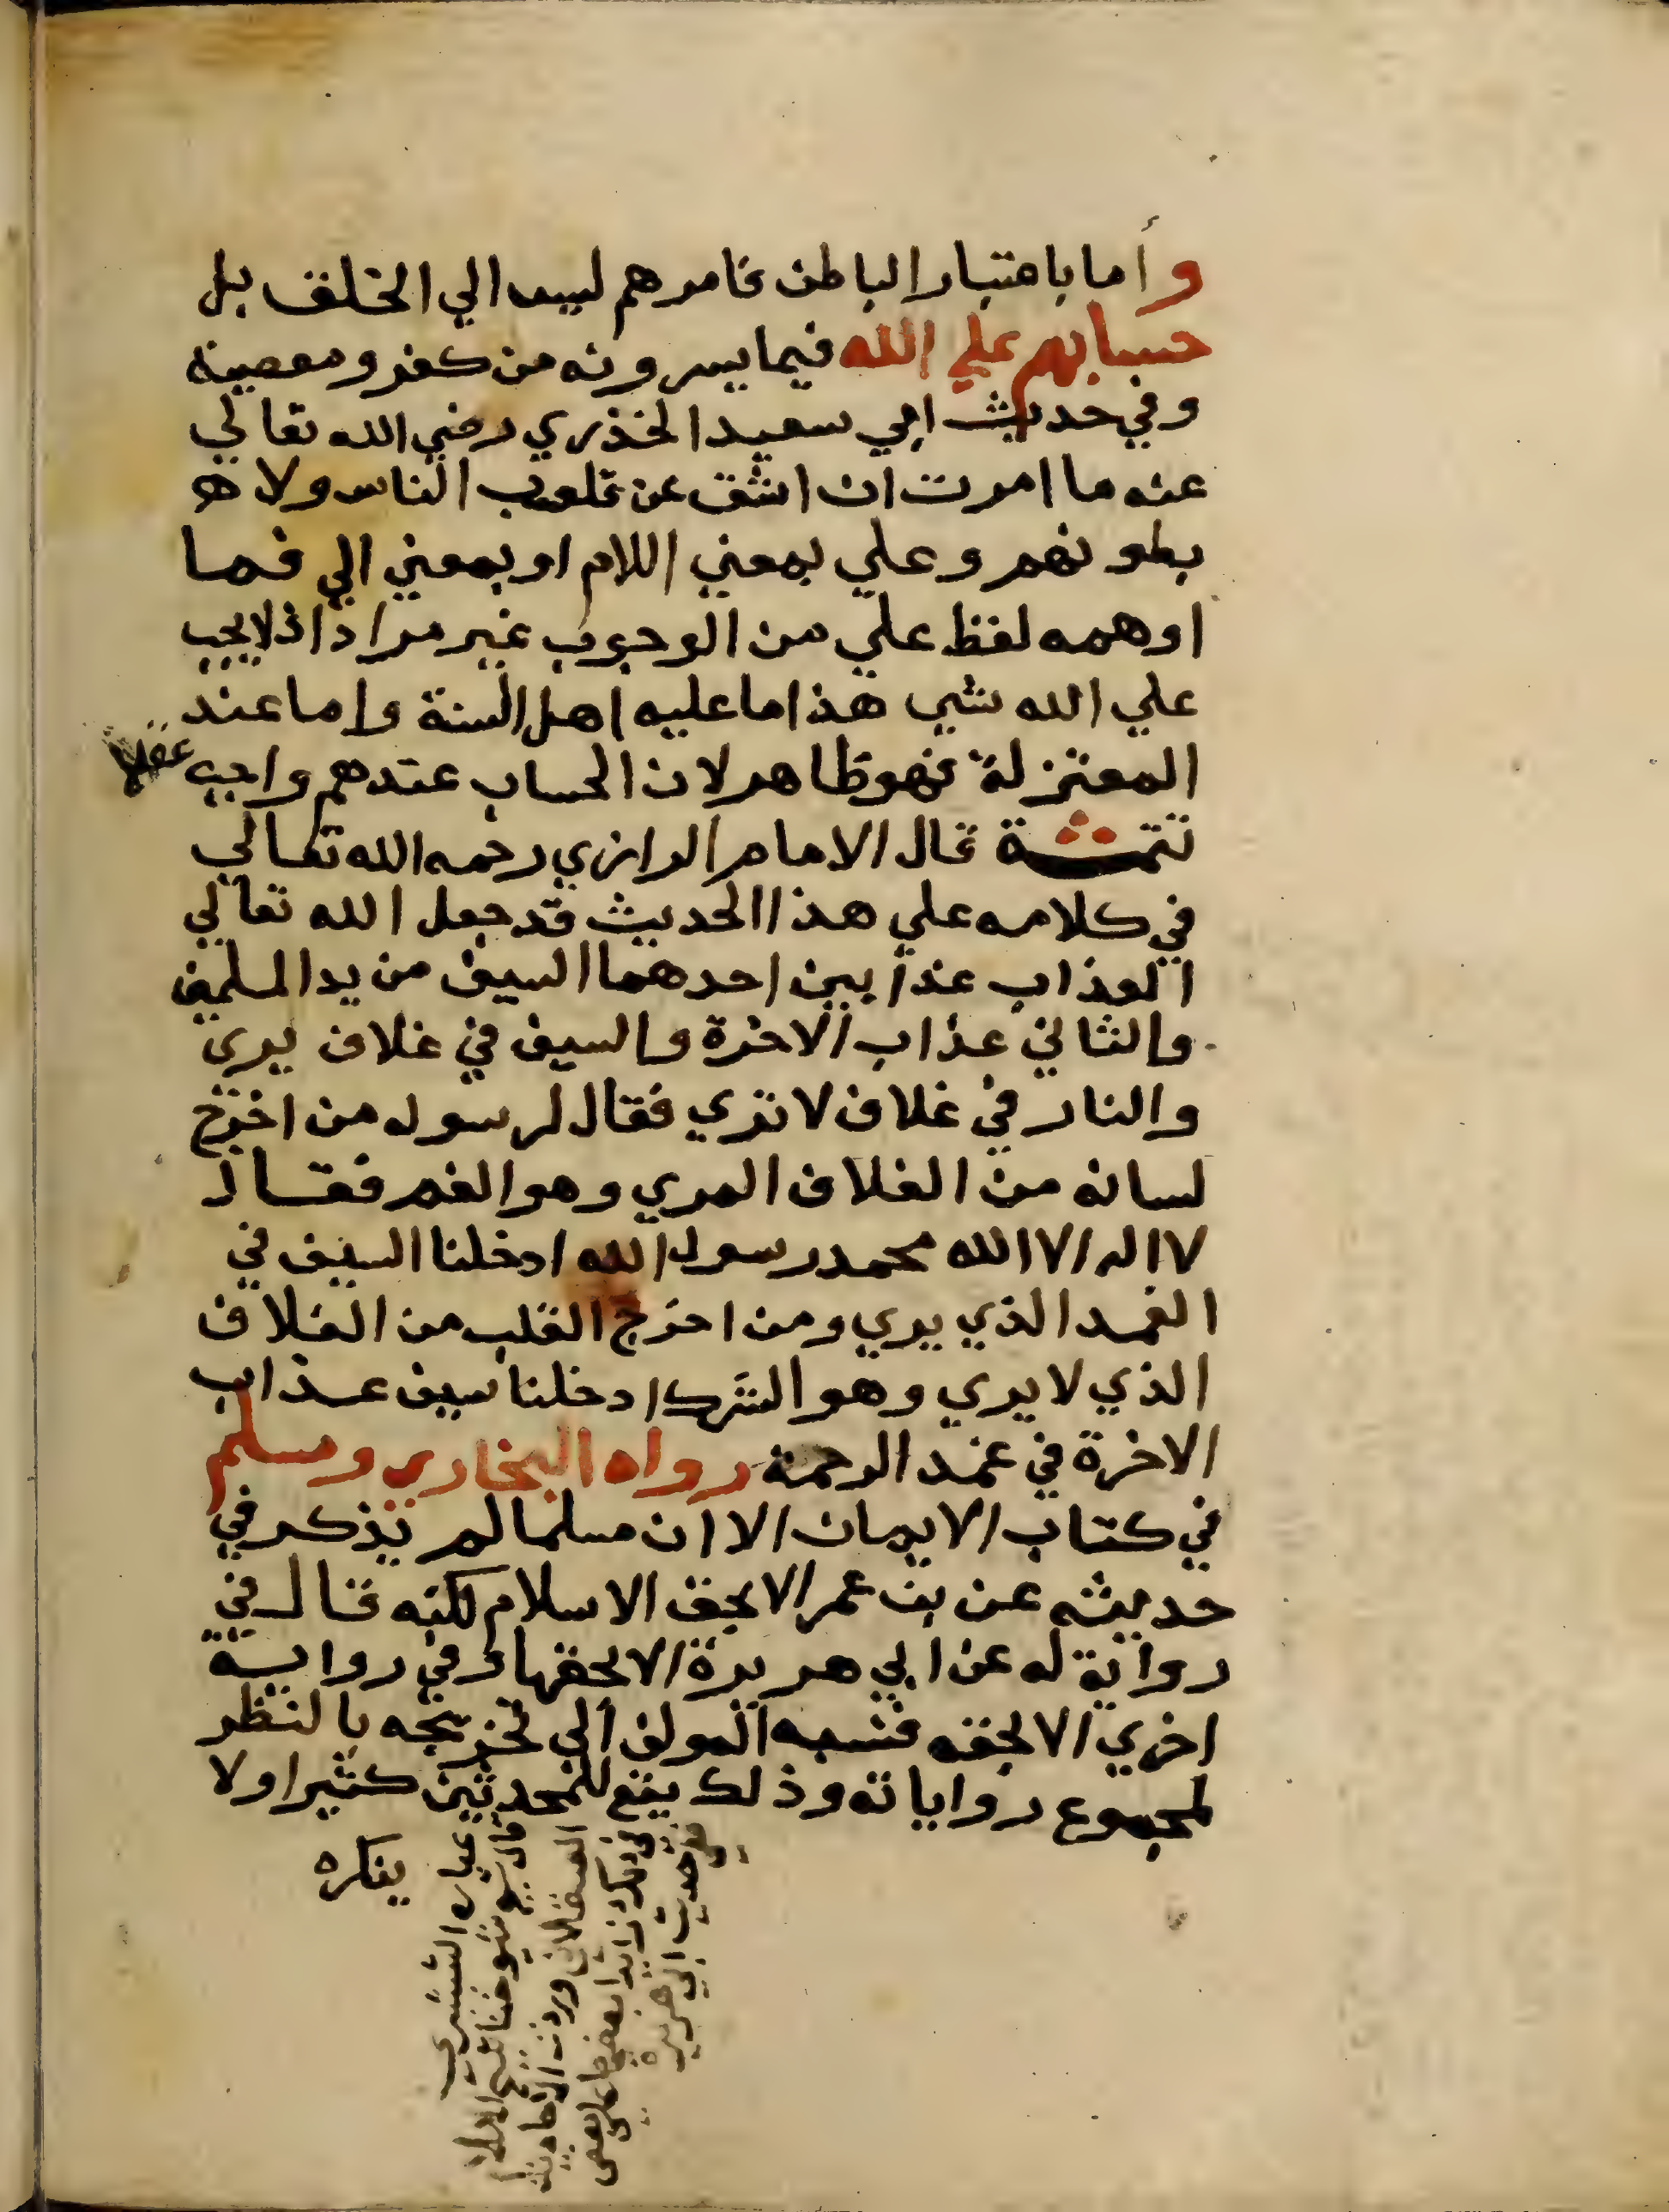 وأما باعتبار الباطن فامرهم ليس الي الخلق بل
حسابهم علي الله فيما يسرونه من كفر ومعصية
وفي حديث ابي سعيد الخذري رضي الله تعالي
عنه ما امرت ان اشق عن قلوب الناس ولا
بطونهم وعلي بمعني اللام او بمعني الي فما
اوهمه لفظ علي من الوجوب غير مراد اذ لا يجب
علي الله شي هذا ما عليه اهل السنة واما عند
المعتزلة فهو ظاهر لان الحساب عندهم واجب عقلا
تتمة قال الامام الرازي رحمه الله تعالي
في كلامه علي هذا الحديث قد جعل الله تعالي
العذاب عذابين احدهما السيف من يد المسلمين
والثاني عذاب الاخرة والسيف في غلاف يري
والنار في غلاف لا تري فقال لرسوله من اخرج
لسانه من الغلاف المري وهو الفم فقال
لا اله الا الله محمد رسول الله ادخلنا السيف في
الغمد الذي يري ومن اخرج القلب من الغلاف
الذي لا يري وهو الشرك ادخلنا سيف عذاب
الاخرة في غمد الرحمة رواه البخاري ومسلم
في كتاب الايمان الا ان مسلما لم يذكر في
حديثه عن بن عمر الا بحق الاسلام لكنه قال في
رواية له عن ابي هريرة الا بحقها وفي رواية
اخري الا بحقه فنسبه المولف الي تخريجه بالنظر
لمجموع رواياته وذلك يقع للمحدثين كثيرا ولا
ينكره
عبارة الشبشري
قال شيخ شيوخنا
العسقلاني وردت الاحاديث
في ذلك زائدا بعضها علي بعض
ففي حديث ابي هريرة